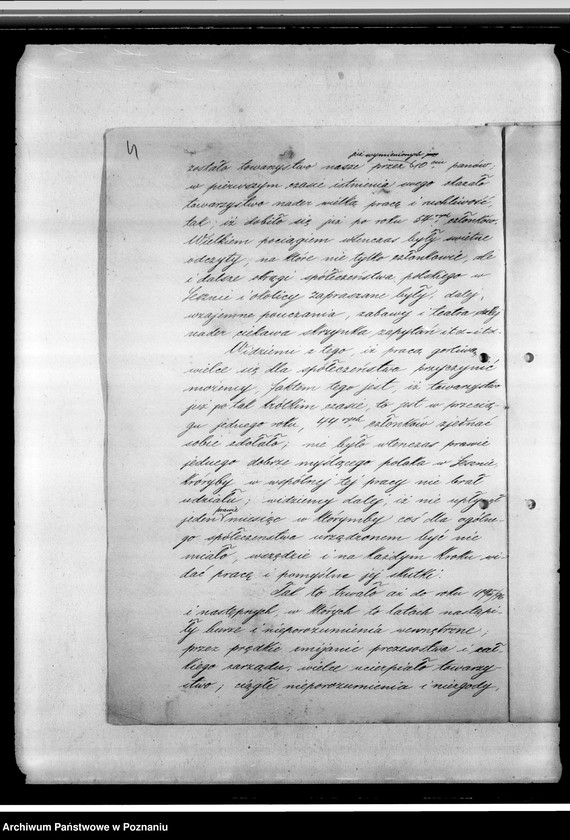 4
już wymienionych
zostało towarzystwo nasze przez 10 ciu panów;
w pierwszym czasie istnienia swego okazało
towarzystwo nader wielką pracę i ruchliwość,
tak, iż dobiło się już po roku 54 rech członków.
Wielkiem pociągiem wtenczas były świetne
odczyty, na które nie tylko członkowie, ale
i dalsze okręgi społeczeństwa polskiego w
Lesznie i okolicy zapraszane były, dalej,
wzajemne pouczania, zabawy i teatra
nader ciekawa skrzynka zapytań i.t.d. i.t.d.
Widziemy z tego, iż praca gorliwa,
wielce się dla społeczeństwa przyczynić
możemy, faktem tego jest, iż towarzystwo
już po tak krótkim czasie, to jest w przecią-
gu jednego roku, 44 rech członków zjednać
sobie zdołało; nie było wtenczas prawie
jednego dobrze myślącego polaka w Lesznie,
któryby w wspólnej tej pracy nie brał
udziału; widziemy dalej, iż nie upłynął
prawie
jeden miesiąc w którymby coś dla ogólne-
go społeczeństwa urządzonem być nie
miało, wszędzie i na każdym kroku wi-
dać pracę i pomyślne jej skutki.
Tak to trwało aż do roku 1895/96
i następnych w których to latach nastąpi-
ły burze i nieporozumienia wewnętrzne;
przez prędkie mijanie prezesostwa i cał-
kiego zarządu, wielce ucierpiało towarzy-
stwo; ciągłe nieporozumienia i niezgody,
Archiwum Państwowe w Poznaniu